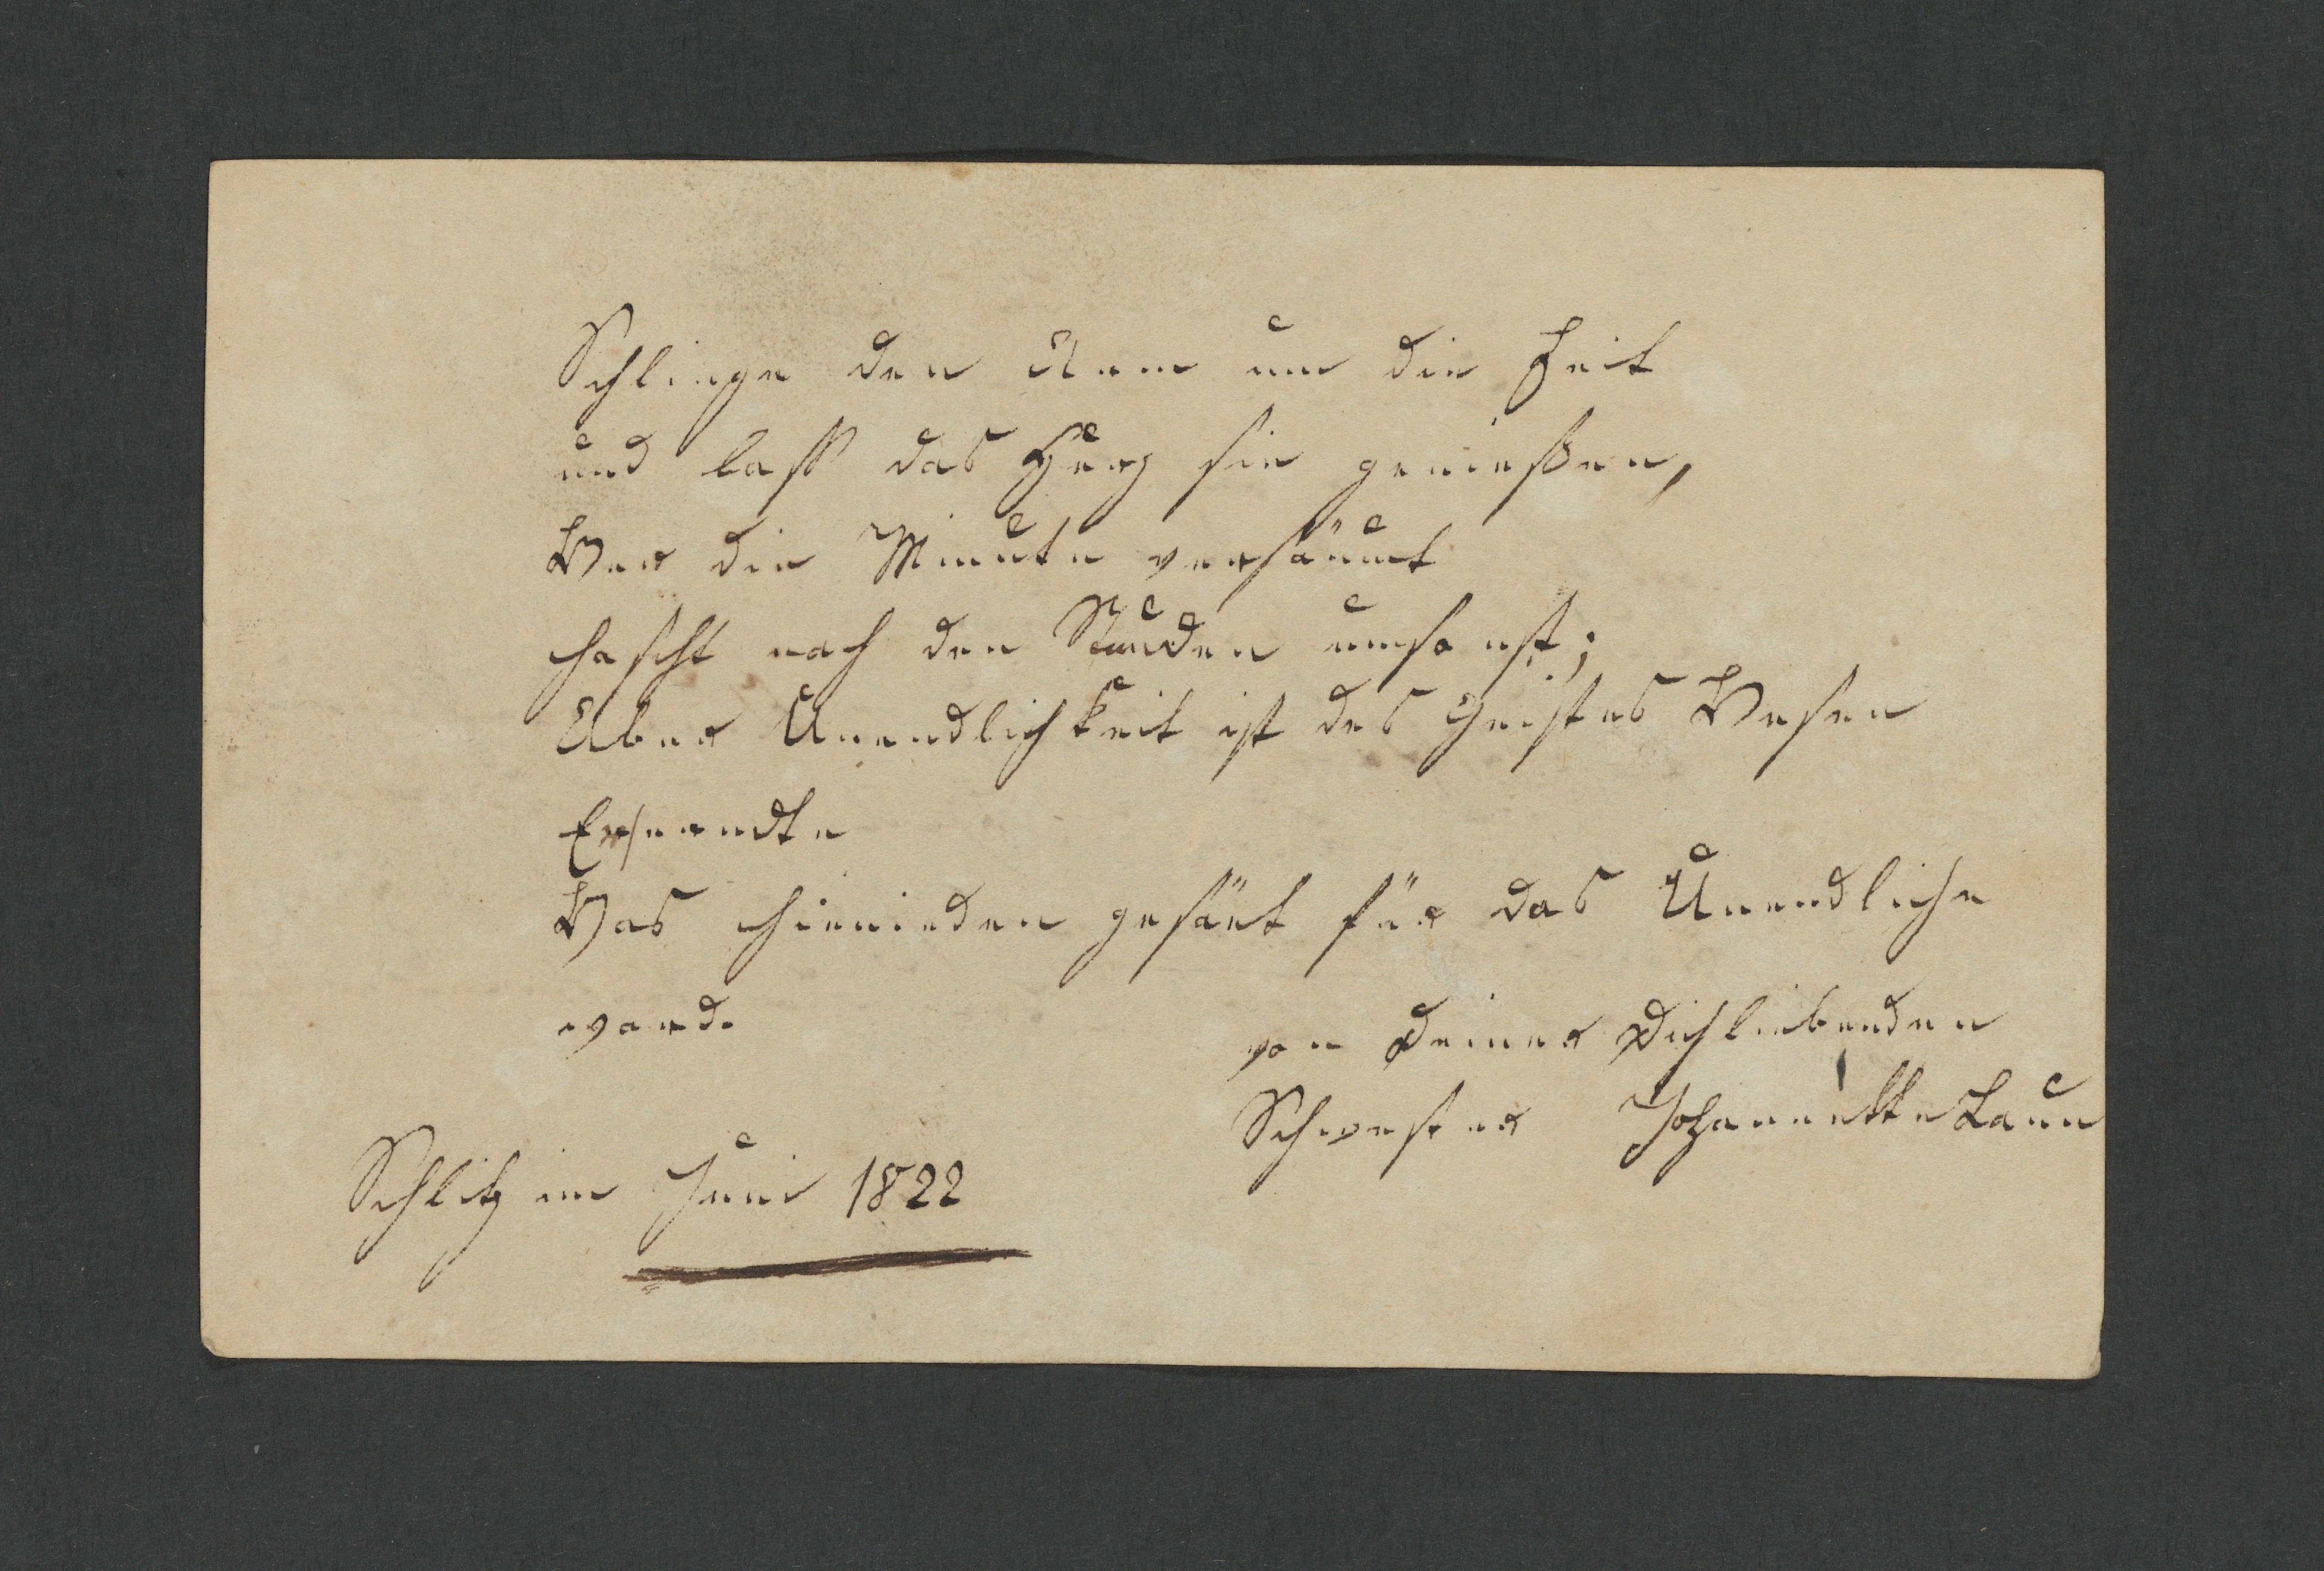 Schlinge den Arm um die Zeit
und lass das Herz sie genießen,
Wer die Minute versäumt
hascht nach den Stunden umsonst;
Aber Unendlichkeit ist des Geistes Wesen
Erserndte
Was hienieden gesäet für das Unendliche
ward.
von Deiner Dichliebenden
Schwester Johannette Laun
Schlitz im Juni 1822